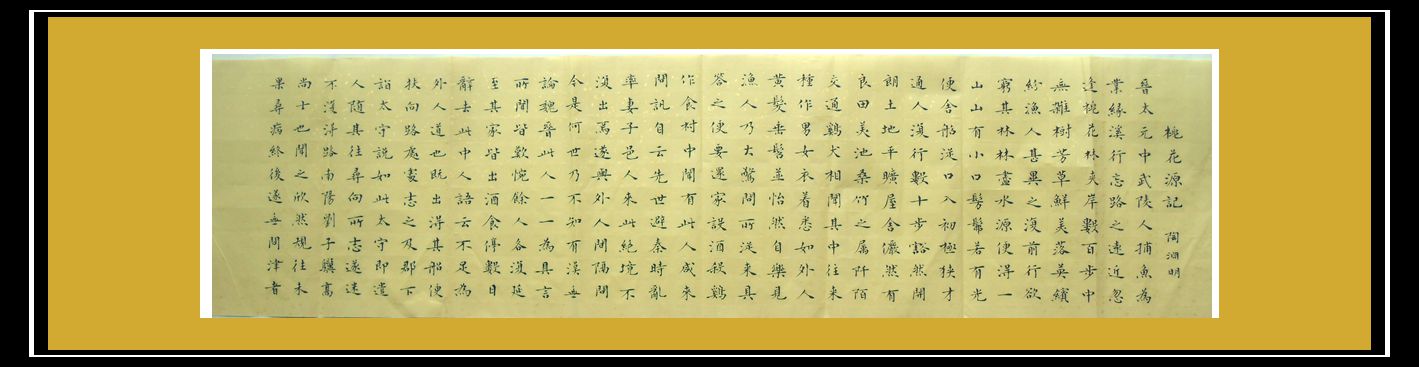 桃花源記 陶淵明
晉太元中武陵人捕魚為
業緣溪行忘路之遠近忽
逢桃花林夾岸數百步中
無雜樹芳草鮮美落英繽
紛漁人甚異之復前行欲
窮其林林盡水源便得一
山山有小口髣髴若有光
便舍船從口入初極狹才
通人復行數十步豁然開
朗土地平曠屋舍儼然有
良田美池桑竹之屬阡陌
交通鷄犬相聞其中往來
種作男女衣着悉如外人
黃髮垂髫並怡然自樂見
漁人乃大驚問所從來具
答之便要還家設酒殺鷄
作食村中聞有此人咸來
問訊自云先世避秦時亂
率妻子邑人來此絕境不
復出焉遂與外人間隔問
今是何世乃不知有漢無
論魏晉此人一一為具言
所聞皆歎惋餘人各復延
至其家皆出酒食停數日
辭去此中人語云不足為
外人道也既出得其船便
扶向路處處志之及郡下
詣太守說如此太守即遣
人隨其往尋向所志遂迷
不復得路南陽劉子驥高
尚士也聞之欣然規往未
果尋病終後遂無問津者